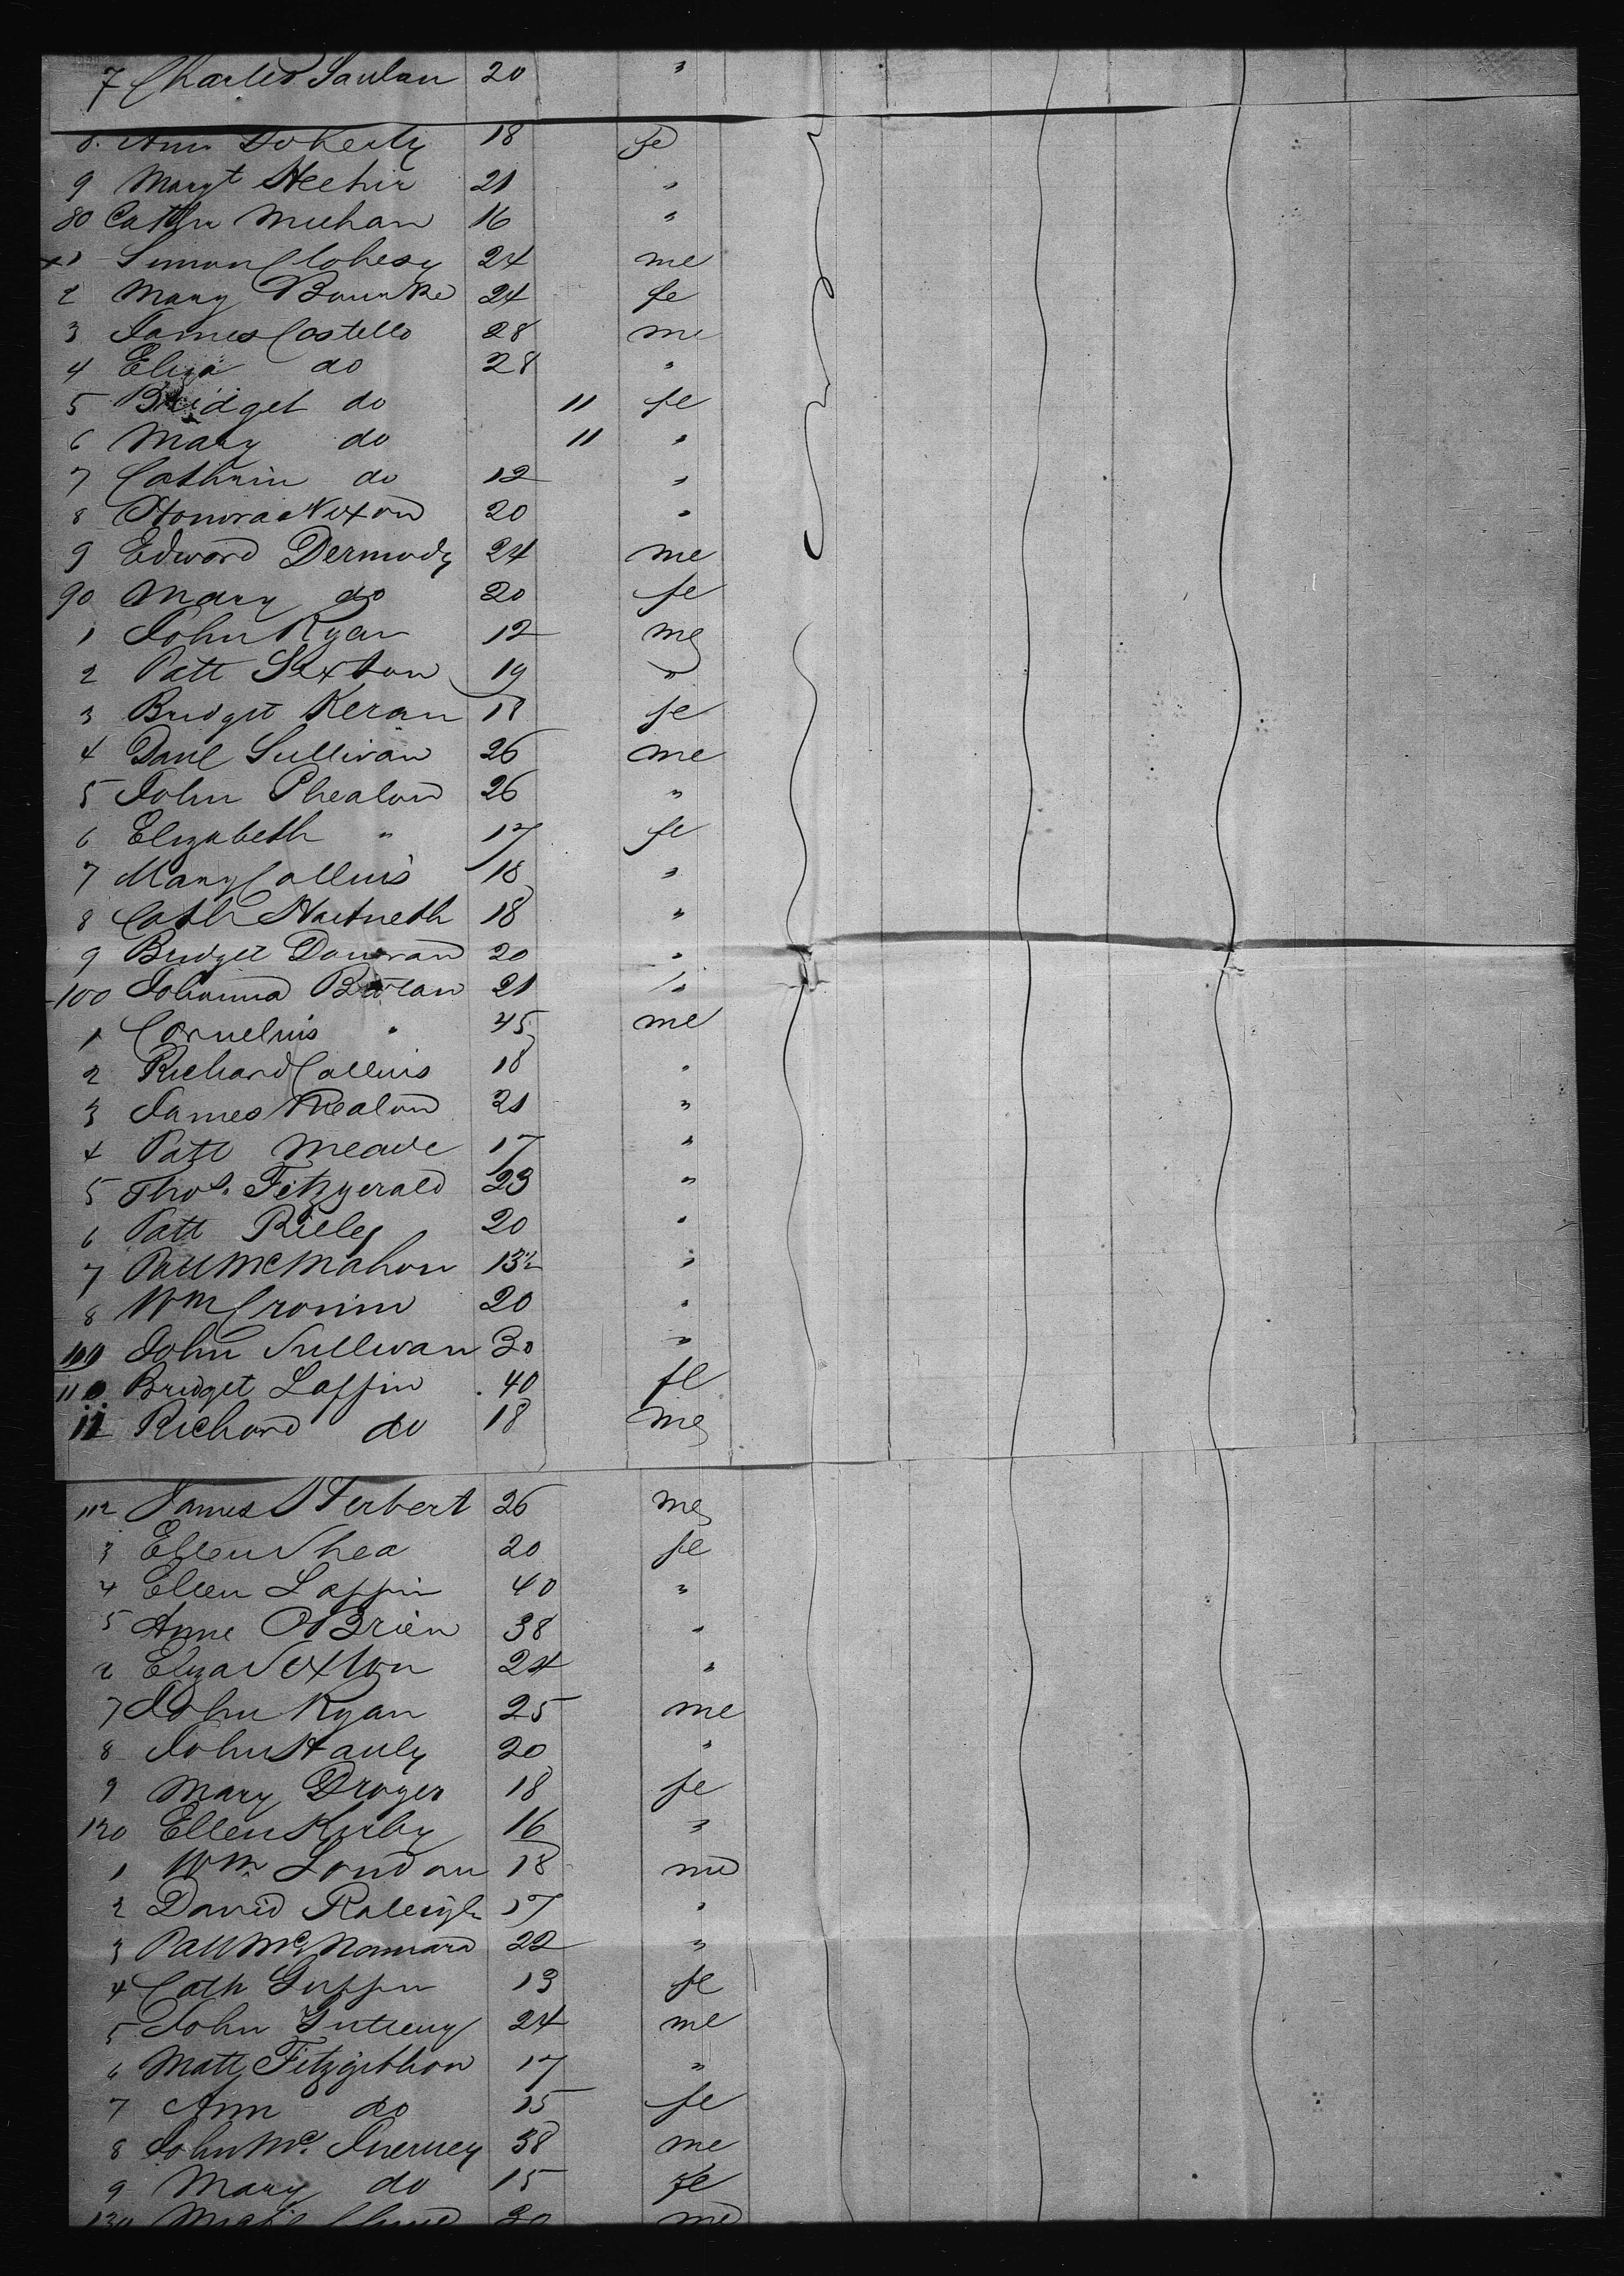 7 Charles 20 "
8 Ann Doherty 18 fe
9 Margt Heehir 21 "
80 Cathn Meehan 16 "
1 Simon Clohesy 24 me
2 Mary Bourke 24 fe
3 James Costello 28 me
4 Eliza do 28 "
5 Bridget do 11 fe
6 Mary do 11 "
7 Cathrin do 12 "
8 Honora Nixon 20 "
9 Edward Dermody 24 me
90 Mary do 20 fe
1 John Ryan 12 me
2 Patt Sexton 19 "
3 Bridget Keran 18 fe
4 Danl Sullivan 26 me
5 John Phealon 26 "
6 Elizabeth " 17 fe
7 Mary Collins 18 "
8 Cath Hartneth 18 "
9 Bridget Donovan 20 "
100 Johanna 21 "
1 Cornelius " 45 me
2 Richard Collins 18 "
3 James Phealon 21 "
4 Patt Meade 17 "
5 Thos. Fitzgerald 23 "
6 Patt Rieley 20 "
7 Patt McMahon 13½ "
8 Wm Cronin 20 "
109 John Sullivan 30 "
110 Bridget Laffin 40 fe
11 Richard do 18 me
112 James Herbert 26 me
3 Ellen Shea 20 fe
4 Ellen Laffin 40 "
5 Anne OBrien 38 "
6 Eliza Sexton 24 "
7 John Ryan 25 me
8 John Hauly 20 "
9 Mary Droger 18 fe
120 Ellen Kirby 16 "
1 Wm London 18 me
2 David Raleigh 17 "
3 Patt McNamara 22 "
4 Cath 13 fe
5 John 24 me
6 Matt Fitzgibbon 17 "
7 Ann do 15 fe
8 John Mc Inerney 38 me
9 Mary do 15 fe
130 30 me